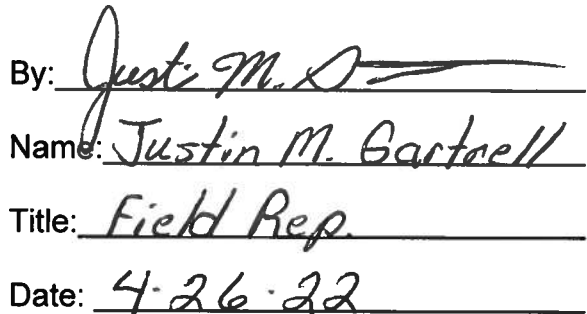 By: Justi M. G
Name: Justin M. Gartrell
Title: Field Rep.
Date: 4-26-22